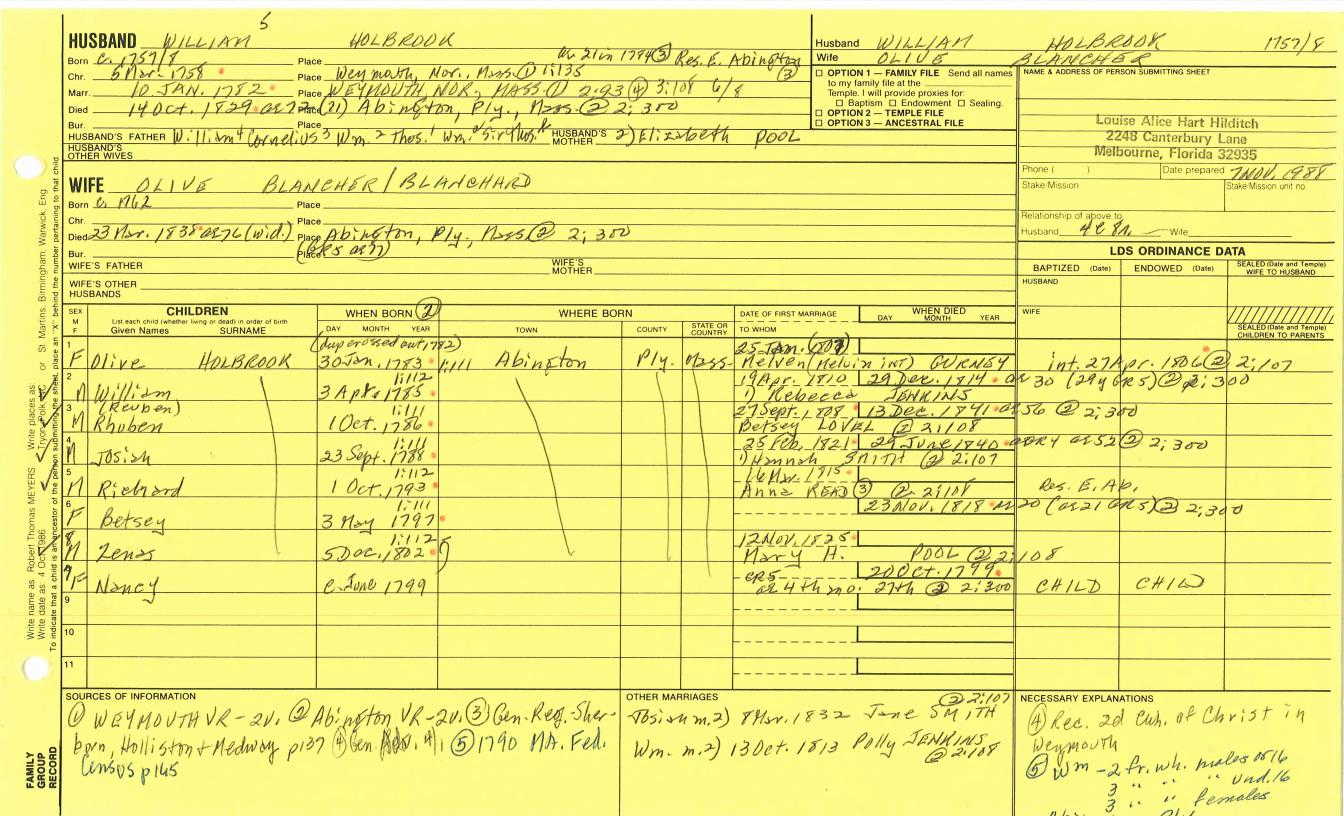 5
HUSBAND WILLIAM HOLBROOK
Born c. 1757/8 Place in 1784 ③ Res. E. Abington ③
Chr. 5 Mar. 1758 Place Weymouth, Nor., Mass. ① 1:135
Marr. 10 JAN. 1782 Place WEYMOUTH, NOR., MASS. ① 2:93 ④ 3:108 6/8
Died 14 Oct. 1829 ae 72 Place (21) Abington, Ply., Mass. ② 2:300
Bur. Place
HUSBAND'S FATHER William⁴ Cornelius³ Wm.² Thos.¹ Wm. Sir Thos. HUSBAND'S MOTHER 2) Elizabeth POOL
HUSBAND'S OTHER WIVES
WIFE OLIVE BLANCHER/BLANCHARD
Born c. 1762 Place
Chr. Place
Died 23 Mar. 1838 ae 76 (wid.) Place Abington, Ply., Mass. ② 2:300
Bur. Place (GR5 ae 77)
WIFE'S FATHER WIFE'S MOTHER
WIFE'S OTHER HUSBANDS
Husband WILLIAM HOLBROOK 1757/8
Wife OLIVE BLANCHER
☐ OPTION 1 — FAMILY FILE Send all names
to my family file at the
Temple. I will provide proxies for:
☐ Baptism ☐ Endowment ☐ Sealing.
☐ OPTION 2 — TEMPLE FILE
☐ OPTION 3 — ANCESTRAL FILE
NAME & ADDRESS OF PERSON SUBMITTING SHEET
Louise Alice Hart Hilditch
2248 Canterbury Lane
Melbourne, Florida 32935
Phone ( ) Date prepared 7 NOV. 1988
Stake/Mission Stake/Mission unit no.
Relationship of above to
Husband Wife
LDS ORDINANCE DATA
BAPTIZED (Date) ENDOWED (Date) SEALED (Date and Temple) WIFE TO HUSBAND
HUSBAND
WIFE
SEALED (Date and Temple) CHILDREN TO PARENTS
SEX M F CHILDREN WHEN BORN ② WHERE BORN DATE OF FIRST MARRIAGE WHEN DIED
List each child (whether living or dead) in order of birth
Given Names SURNAME DAY MONTH YEAR TOWN COUNTY STATE OR COUNTRY TO WHOM DAY MONTH YEAR
1 (dup crossed out 1782) 25 Jan.
F Olive HOLBROOK 30 Jan. 1783 1:111 Abington Ply. Mass. Melven (Melvin INT) GURNEY int. 27 Apr. 1806 ② 2:107
2 1:112 19 Apr. 1810 29 Dec. 1814 ae 30 (29y GR5) ② 2:300
M William 3 Apr. 1785 1) Rebecca JENKINS
3 (Reuben) 1:111 27 Sept. 1808 13 Dec. 1841 ae 56 ② 2:300
M Rhuben 1 Oct. 1786 Betsey LOVEL ② 2:108
4 1:111 25 Feb. 1821 29 June 1840 ae 52 ② 2:300
M Josiah 23 Sept. 1788 1) Hannah SMITH ② 2:107
5 1:112 16 Mar. 1815
M Richard 1 Oct. 1793 Anna READ ③ ② 2:108 Res. E. Ab.
6 1:111 23 Nov. 1818 ae 20 (ae 21 GR5) ② 2:300
F Betsey 3 May 1797
8 1:112 12 Nov. 1825
M Zenas 5 Dec. 1802 Mary H. POOL ② 2:108
7 GR5 20 Oct. 1799
F Nancy c. June 1799 ae 4th mo. 27th ② 2:300 CHILD CHILD
9
10
11
SOURCES OF INFORMATION
① WEYMOUTH VR - 2v. ② Abington VR - 2v. ③ Gen. Reg. Sher-
born, Holliston & Medway p137 ④ Gen. ⑤ 1790 MA. Fed.
Census p 165
OTHER MARRIAGES ② 2:107
Josiah m. 2) 8 Mar. 1832 Jane SMITH
Wm. m. 2) 13 Oct. 1813 Polly JENKINS
② 2:108
NECESSARY EXPLANATIONS
④ Rec. 2d Chh. of Christ in
Weymouth
⑤ Wm - 2 fr. wh. males ov 16
3 " " " und. 16
3 " " females
FAMILY GROUP RECORD
Write name as: Robert Thomas MEYERS Write places as: Tryon, Polk, NC or St. Martins, Birmingham, Warwick, Eng
Write date as: 4 Oct 1986
To indicate that a child is an ancestor of the person submitting the sheet, place an "X" behind the number pertaining to that child